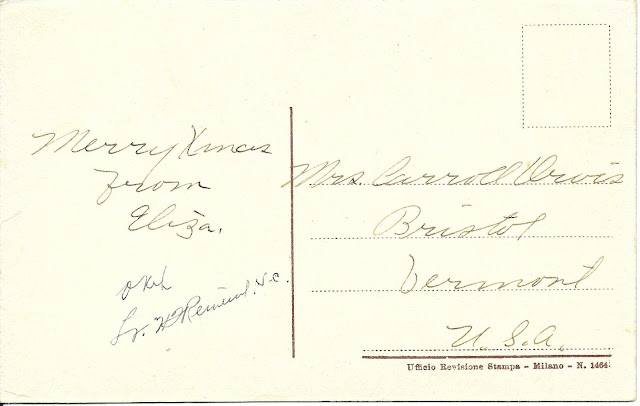 Merry Xmas
from
Eliza.
Mrs. Carroll Orvis
Bristol
Vermont
U.S.A.
Ufficio Revisione Stampa - Milano - N. 1464.